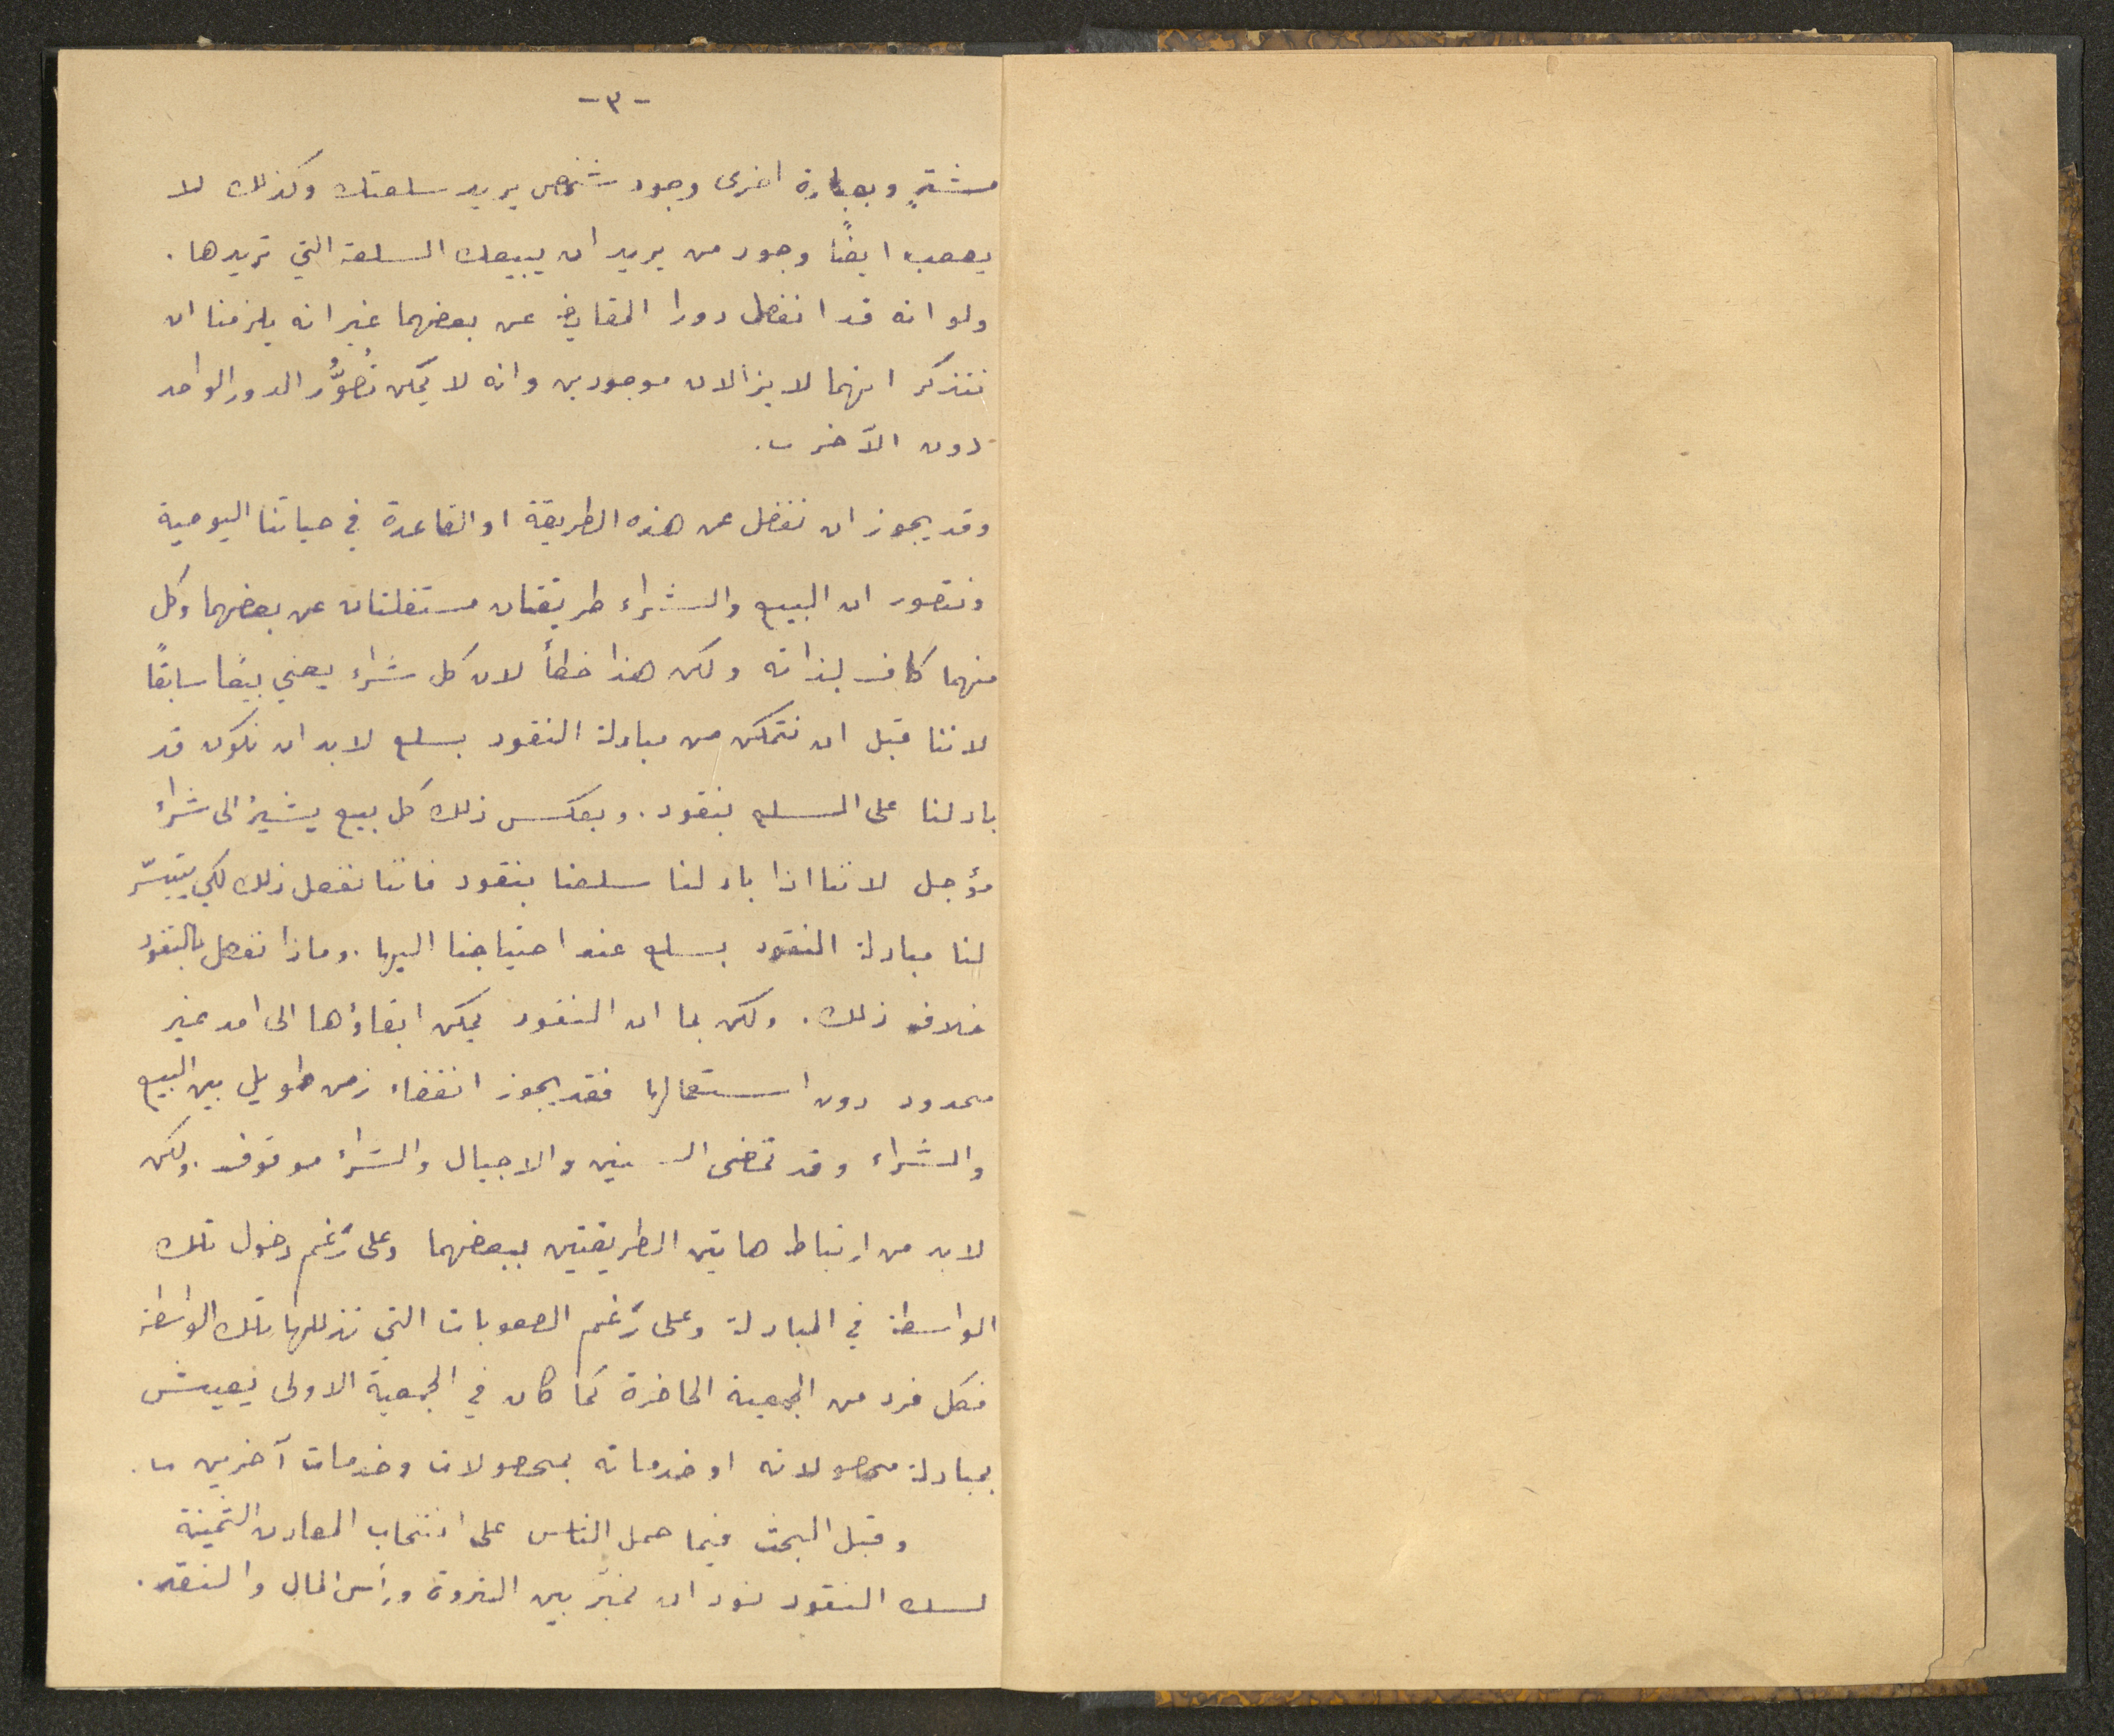 -٣-
مشترٍ وبعبارة اخرى وجود شخص يريد سلعتك وكذلك لا
يصعب ايضًا وجود من يريد ان يبيعك السلعة التي تريدها.
ولو انه قد انفصل دورا المقايضة عن بعضهما غير انه يلزمنا ان
نتذكر انهما لا يزالان موجودين وانه لا يمكن تُصوُّر الدور الواحد
دون الآخر.
وقد يجوز ان نغفل عن هذه الطريقة او القاعدة في حياتنا اليومية
ونتصور ان البيع والشراء طريقتان مستقلتان عن بعضهما وكل
منهما كاف بذاته ولكن هذا خطأ لان كل شراء يعني بيعًا سابقًا
لاننا قبل ان نتمكن من مبادلة النقود بسلع لا بد ان نكون قد
بادلنا على السلع بنقود. وبعكس ذلك كل بيع يشير الى شراء
مؤجل لاننا اذا بادلنا سلعنا بنقود فاننا نفعل ذلك لكي يتيسّر
لنا مبادلة النقود بسلع عند احتياجنا اليها. وماذا نفعل بالنقود
خلاف ذلك. ولكن بما ان النقود يمكن ابقاؤها الى امد غير
محدود دون استعمالها فقد يجوز انقضاء زمن طويل بين البيع
والشراء وقد تمضى السنين والاجيال والشراء موقوف. ولكن
لا بد من ارتباط هاتين الطريقتين ببعضهما وعلى رغم دخول تلك
الواسطة في المبادلة وعلى رغم الصعوبات التي تذللها تلك الواسطة
فكل فرد من الجمعية الحاضرة كما كان في الجمعية الاولى يعيش
بمبادلة محصولاته او خدماته بمحصولات وخدمات آخرين.
وقبل البحث فيما حمل الناس على انتخاب المعادن الثمينة
لسك النقود نود ان نميّز بين الثروة ورأس المال والنقد.